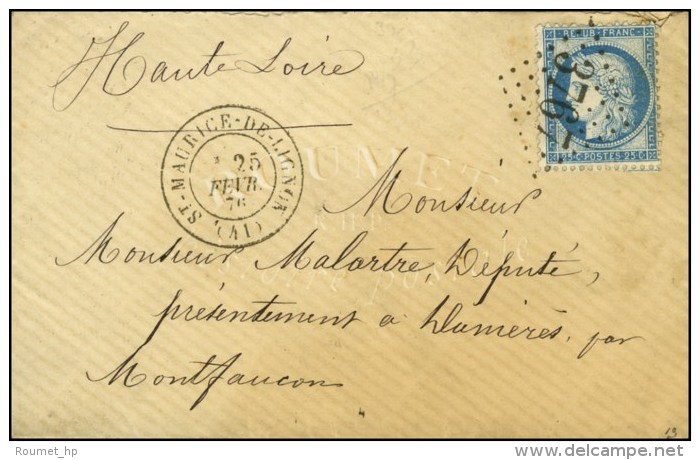 Haute Loire
REPUB. FRANC.
25 C. POSTES 25 C.
ST-MAURICE-DE-LIGNON
25
FEVR.
76
(41)
Monsieur
Monsieur Malartre, Député,
présentement a Dunières, par
Montfaucon
ROUMET
13
Posted by: Roumet_hp
www.delcampe.net